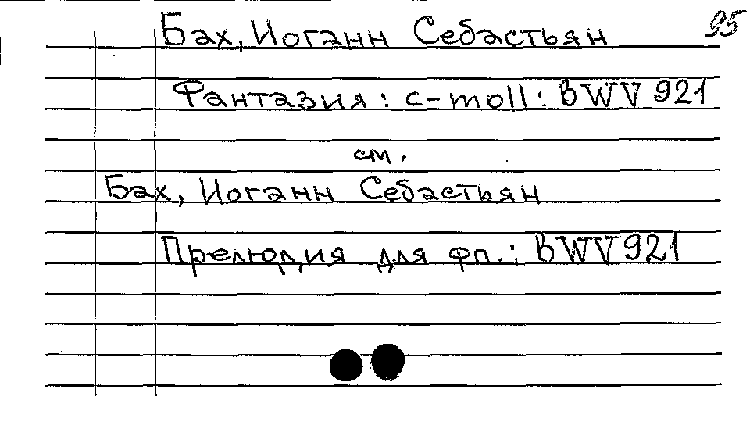 95
Бах, Иоганн Себастьян
Фантазия: c-moll: BWV 921
см.
Бах, Иоганн Себастьян
Прелюдия для фп.: BWV 921